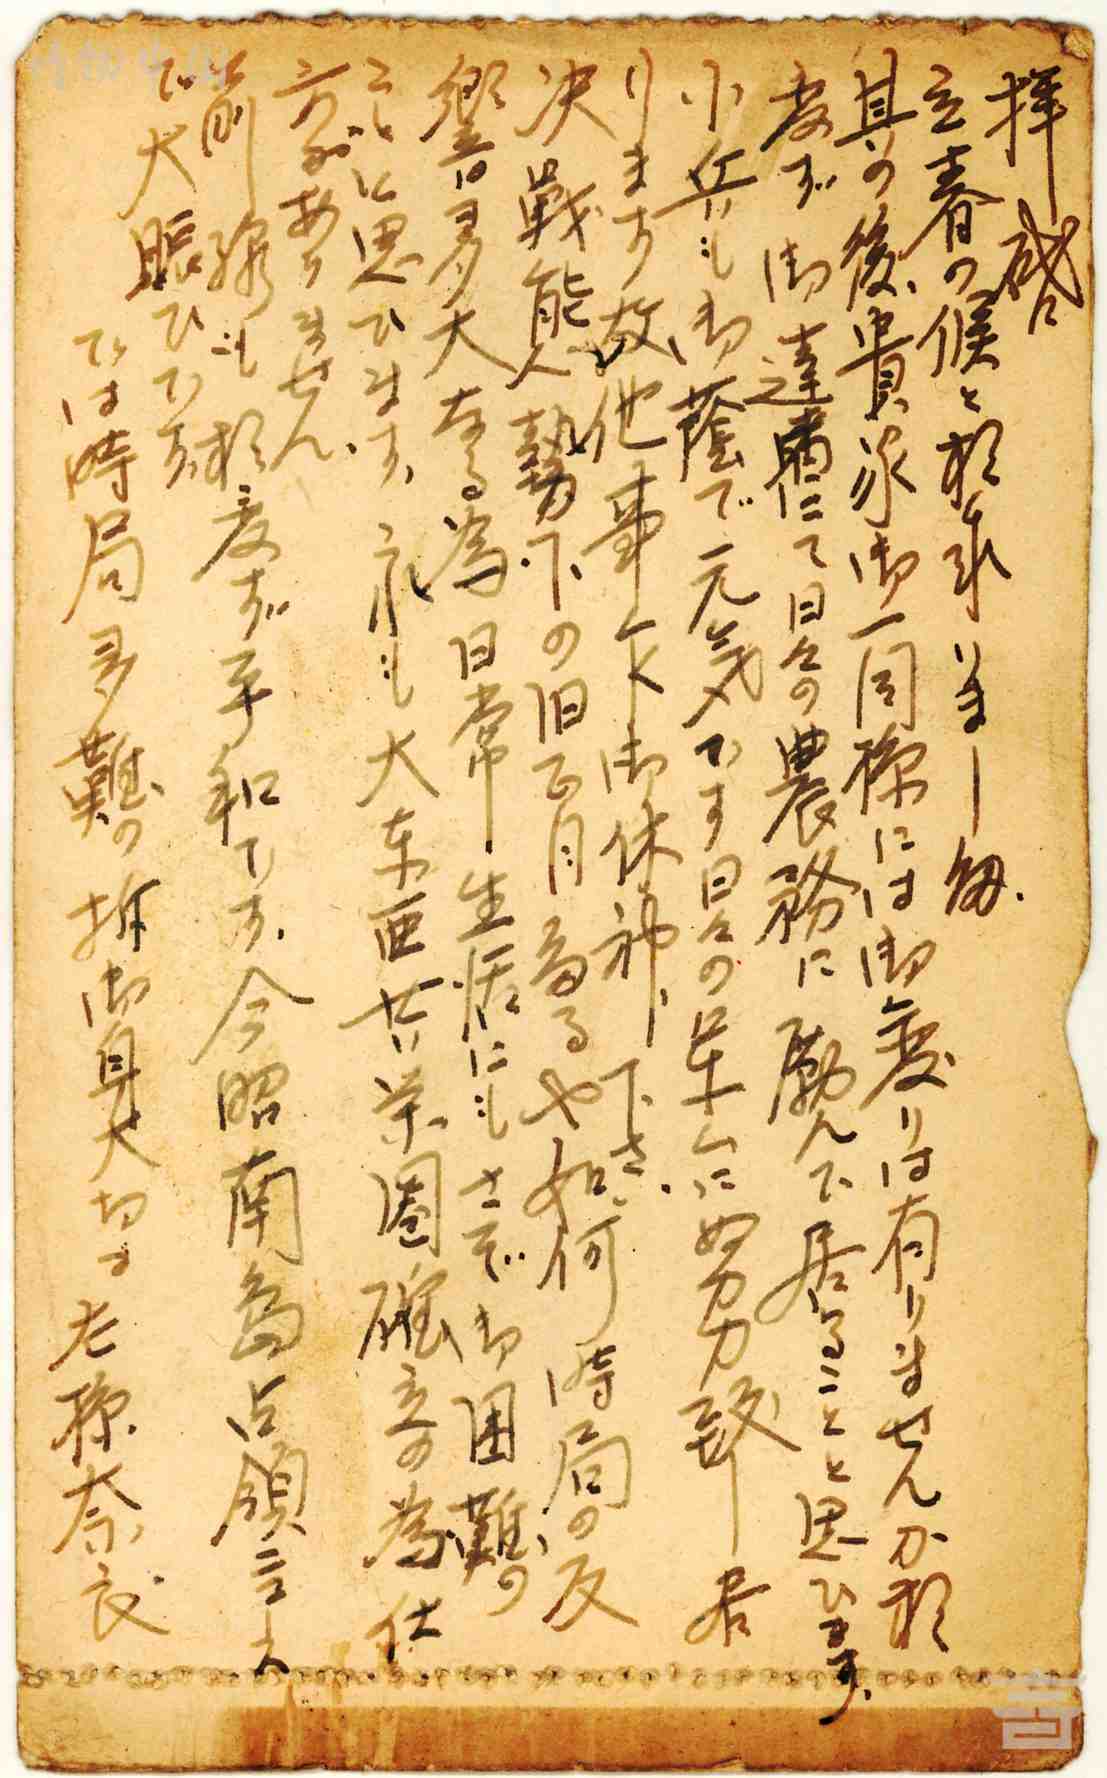 拝啓
立春の候と相成りました。
其の後貴家御一同様には御変りは有りませんか相
変ず御達者にて日々の農務に励んで居ることと思ひます。
小生も御蔭で元気です日々の軍ムに努力致し居
ります故他事乍ら御休神下さい。
決戦態勢下の旧正月为るや如何時局の反
響は多大なる為日常生活にもさぞ御困難の
ことと思ひます、之も大東亜共栄圏確立の為仕
方があありません。
前線も相変ず平和です、今昭南島占領三
で大賑ひです。
では時局多難の折御身大切に 左様奈良